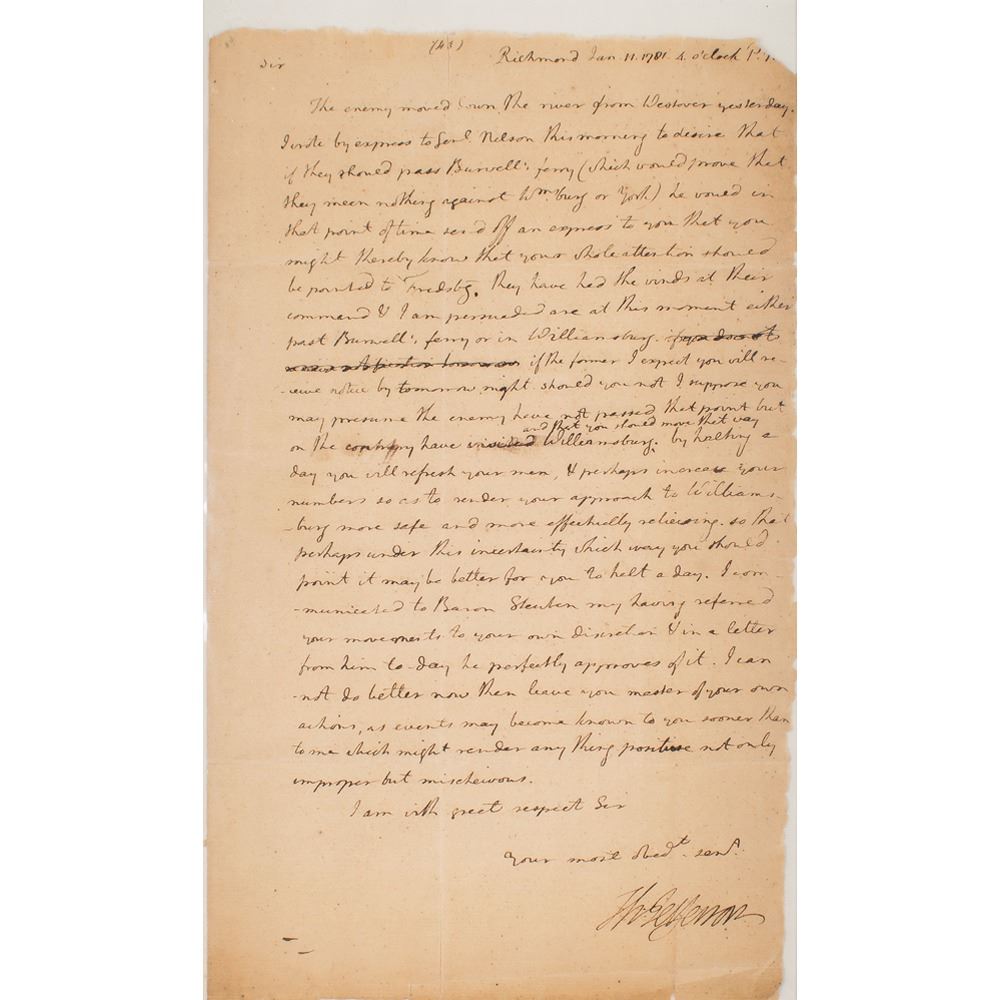 (43)
Sir Richmond Jan. 11. 1781. 4. o'clock P.
The enemy moved down the river from Westover yesterday.
I wrote by express to Genl. Nelson this morning to desire that
if they should pass Burwell's ferry (which would prove that
they mean nothing against Wmsburg or York) he would in
that point of time send off an express to you that you
might thereby know that your whole attention should
be pointed to Fredsbg. they have had the winds at their
command & I am persuaded are at this moment either
past Burwell's ferry or in Williamsburg. if you do not
if the former I expect you will re-
-ceive notice by tomorrow night. should you not I suppose you
may presume the enemy have not passed that point but
and that you should move that way
on the contrary have visited Williamsburg. by halting a
day you will refresh your men, & perhaps increase your
numbers so as to render your approach to Williams-
-burg more safe and more effectually relieving. so that
perhaps under this incertainty which way you should
point it may be better for you to halt a day. I com-
-municated to Baron Steuben my having referred
your movements to your own discretion & in a letter
from him to-day he perfectly approves of it. I can
-not do better now than leave you master of your own
actions, as events may become known to you sooner than
to me which might render any thing positive not only
improper but mischeivous.
I am with great respect Sir
Your most obedt. servt.
Th: Jefferson